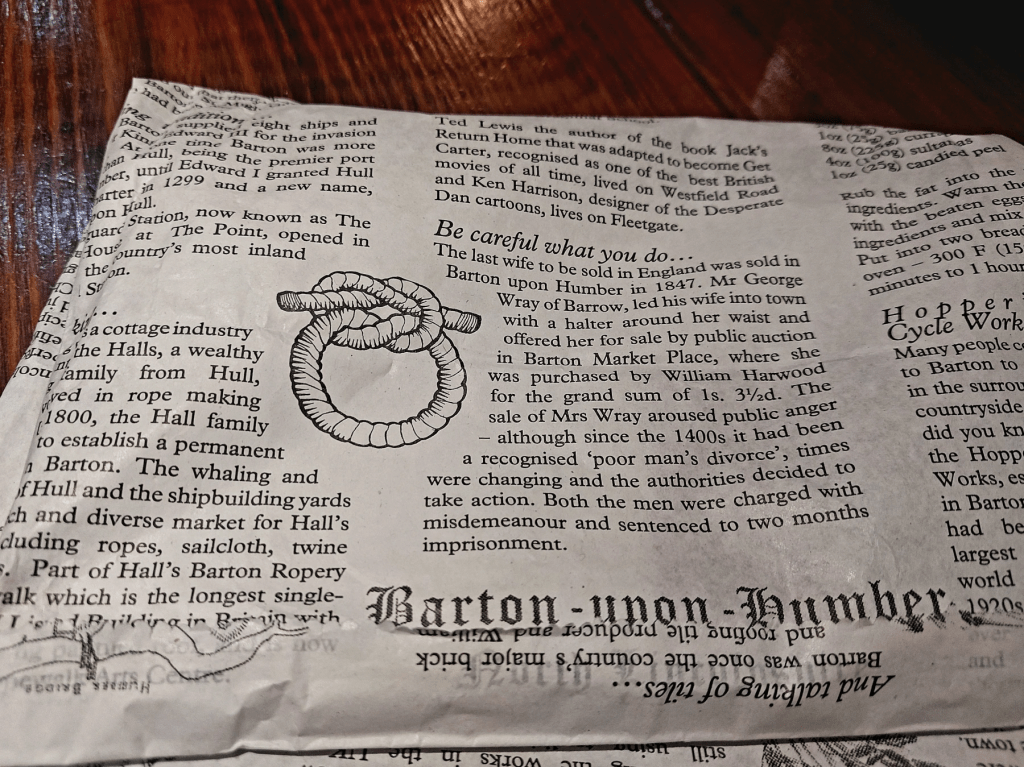 eight ships and
supplied
Edward III for the invasion
time Barton was more
Hull, being the premier port
until Edward I granted Hull
in 1299 and a new name,
Hull.
Station, now known as The
at The Point, opened in
the country's most inland
a cottage industry
the Halls, a wealthy
family from Hull,
in rope making
1800, the Hall family
to establish a permanent
Barton. The whaling and
of Hull and the shipbuilding yards
and diverse market for Hall's
ropes, sailcloth, twine
Part of Hall's Barton Ropery
which is the longest single-
Building in Britain with
now
Arts Centre.
Humber Bridge
Ted Lewis the author of the book Jack's
Return Home that was adapted to become Get
Carter, recognised as one of the best British
movies of all time, lived on Westfield Road
and Ken Harrison, designer of the Desperate
Dan cartoons, lives on Fleetgate.
Be careful what you do...
The last wife to be sold in England was sold in
Barton upon Humber in 1847. Mr George
Wray of Barrow, led his wife into town
with a halter around her waist and
offered her for sale by public auction
in Barton Market Place, where she
was purchased by William Harwood
for the grand sum of 1s. 3½d. The
sale of Mrs Wray aroused public anger
– although since the 1400s it had been
a recognised 'poor man's divorce', times
were changing and the authorities decided to
take action. Both the men were charged with
misdemeanour and sentenced to two months
imprisonment.
Barton-upon-Humber
And talking of tiles...
Barton was once the country's major brick
and roofing tile producer and William
1oz (25g)
8oz sultanas
4oz (100g)
1oz (25g) candied peel
Rub the fat into the
ingredients. Warm the
with the beaten eggs
ingredients and mix
Put into two bread
oven – 300 F (15
minutes to 1 hour
Hopper
Cycle Work
Many people
to Barton to
in the
countryside
did you
the
Works,
in Barton
had
largest
world
1920s
over
and
still using
works in the UK
town.